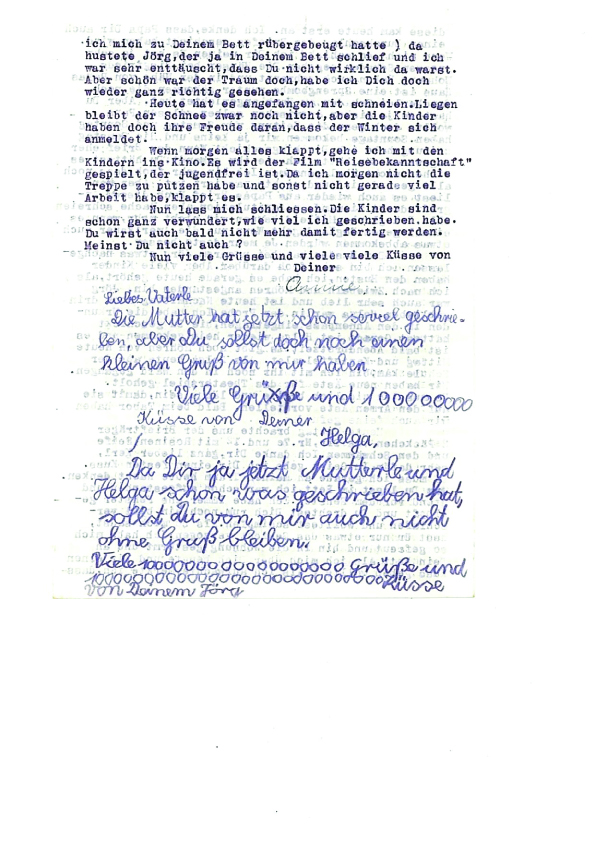 ich mich zu Deinem Bett rübergebeugt hatte ) da
hustete Jörg,der ja in Deinem Bett schlief und ich
war sehr enttäuscht,dass Du nicht wirklich da warst.
Aber schön war der Traum doch,habe ich Dich doch
wieder ganz richtig gesehen.
Heute hat es angefangen mit schneien.Liegen
bleibt der Schnee zwar noch nicht,aber die Kinder
haben doch ihre Freude daran,dass der Winter sich
anmeldet.
Wenn morgen alles klappt,gehe ich mit den
Kindern ins Kino.Es wird der Film "Reisebekanntschaft"
gespielt,der jugendfrei ist.Da ich morgen nicht die
Treppe zu putzen habe und sonst nicht gerade viel
Arbeit habe,klappt es.
Nun lass mich schliessen.Die Kinder sind
schon ganz verwundert,wie viel ich geschrieben habe.
Du wirst auch bald nicht mehr damit fertig werden.
Meinst Du nicht auch ?
Nun viele Grüsse und viele viele Küsse von
Deiner
Liebes Vaterle
Die Mutter hat jetzt schon soviel geschrie-
ben, aber Du sollst doch noch einen
kleinen Gruß von mir haben.
Viele Grüße und 100000000
Küsse von Deiner
Helga,
Da Dir ja jetzt Mutterle und
Helga schon was geschrieben hat,
sollst du von mir auch nicht
ohne Gruß bleiben.
Viele 10000000000000000000 Grüße und
100000000000000000000000000000 Küsse
von Deinem Jörg